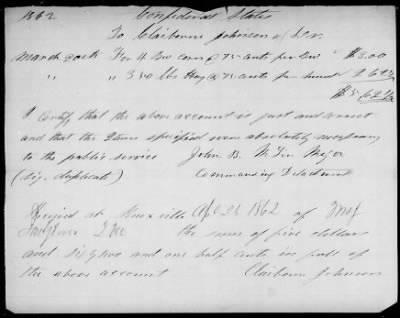 1862 Confederat States
To Claiborne Johnson Dr
March 20th For 4 Bu corn @ 75 cents per Bu $3.00
" " 350 lbs Hay @ 75 cents per hund 2.62½
$5.62½
I certify that the above account is just and correct
and that the Items specified were absolutely necessary
to the public service John B. McLin Major
(sig. duplicate) Commanding Detachment
Recived at Knoxville Apl 1862 of Maj
the sum of five dollars
and sixty two and one half cents in full of
the above account Claiborne Johnson